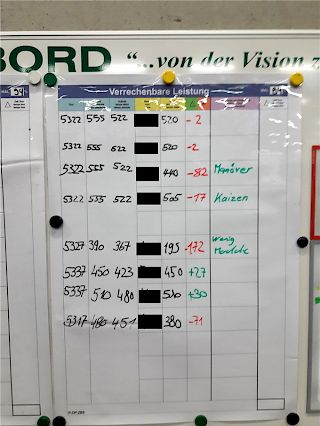 BORD "...von der Vision z
Verrechenbare Leistung
5322 555 522 520 -2
5322 555 522 520 -2
5322 555 522 440 -82 Manöver
5322 555 522 505 -17 Kaizen
5327 390 367 195 -172 Wenig
5337 450 423 450 +27
5337 510 480 510 +30
5317 480 451 380 -71